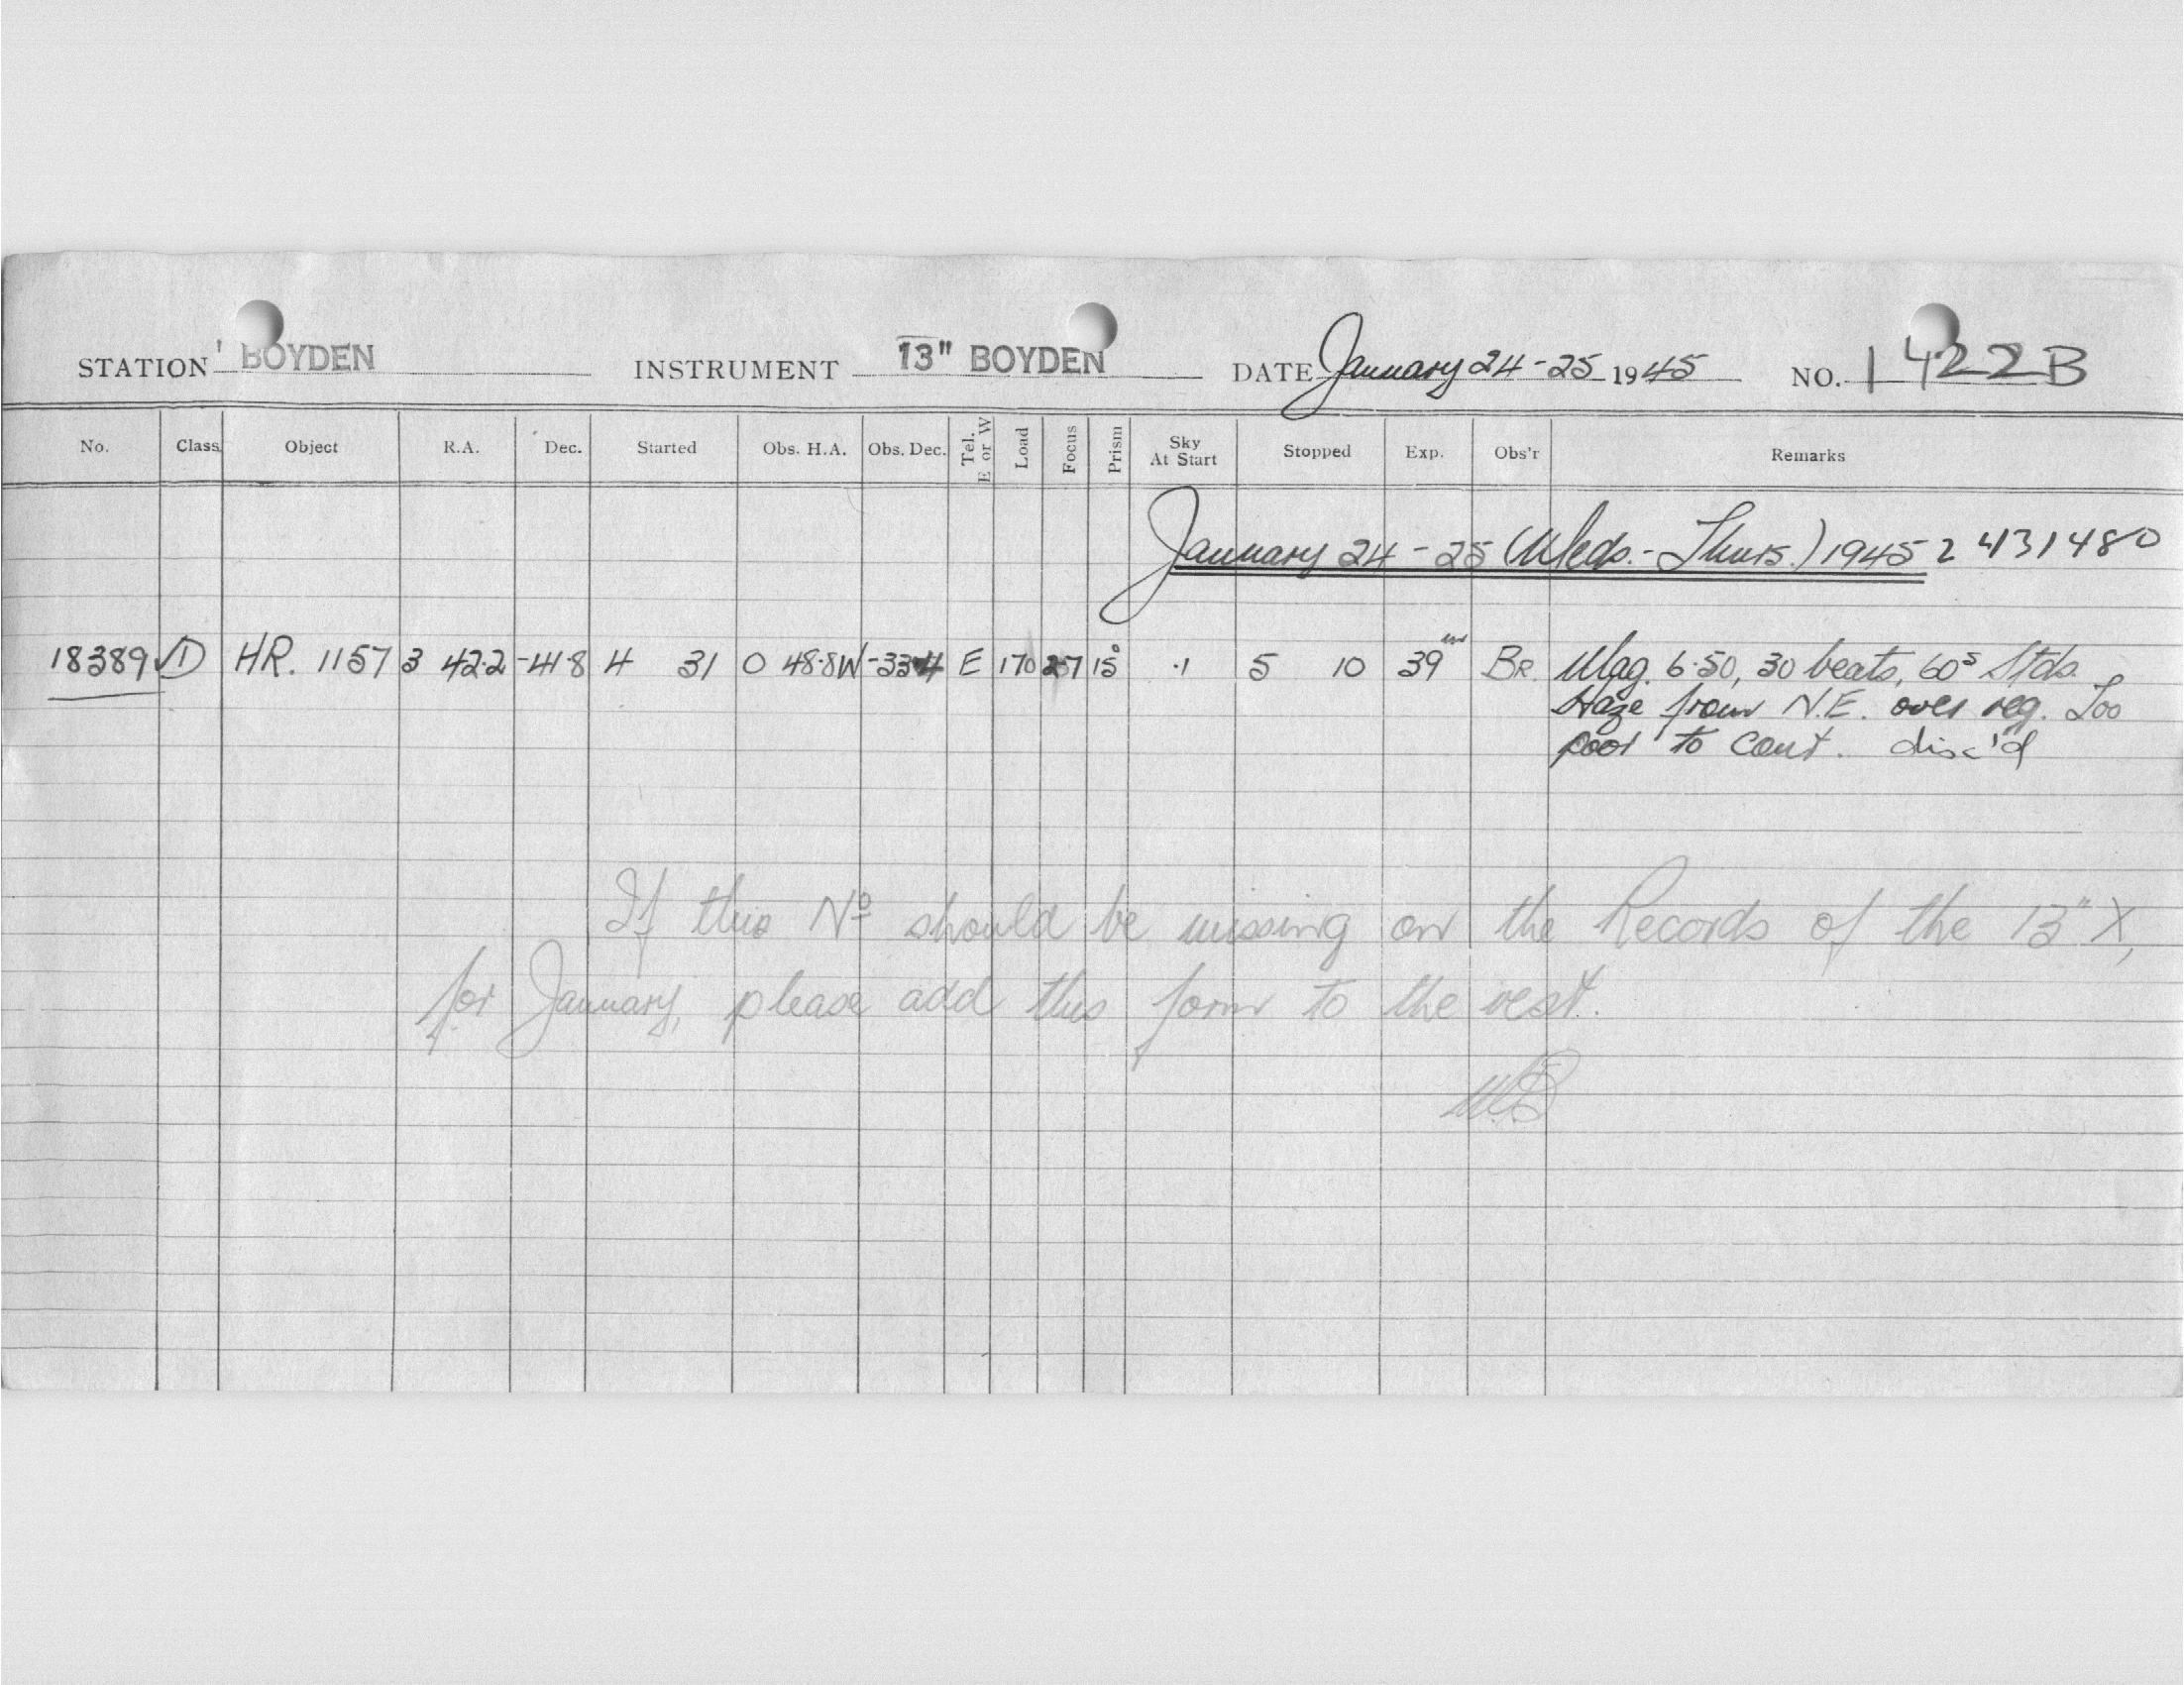 STATION BOYDEN INSTRUMENT 13" BOYDEN DATE January 24-25 1945 NO. 1422B
No. Class Object R.A. Dec. Started Obs. H.A. Obs. Dec. Tel. E or W Load Focus Prism Sky At Start Stopped Exp. Obs'r Remarks
January 24-25 (Weds.-Thurs.) 1945 2431480
18389 HR. 1157 3 42.2 -41.8 4 31 0 48.8W E 170 15° .1 5 10 39m BR. Mag. 6.50, 30 beats, 60s Stds.
Haze from N.E. over reg. Too
poor to cont. disc'd
If this Nº should be missing on the Records of the 13" X,
for January, please add this form to the rest.